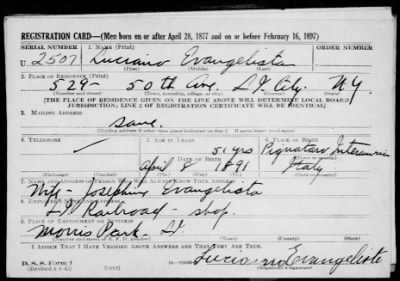 REGISTRATION CARD—(Men born on or after April 28, 1877 and on or before February 16, 1897)
SERIAL NUMBER 1. NAME (Print)
U 2507 Luciano Evangelista
(First) (Middle) (Last)
2. PLACE OF RESIDENCE (Print)
529- 50th Ave. L.I. City. NY
(Number and street) (Town, township, village, or city) (County) (State)
[THE PLACE OF RESIDENCE GIVEN ON THE LINE ABOVE WILL DETERMINE LOCAL BOARD
JURISDICTION; LINE 2 OF REGISTRATION CERTIFICATE WILL BE IDENTICAL]
3. MAILING ADDRESS
Same
4. TELEPHONE 5. AGE IN YEARS 6. PLACE OF BIRTH
51 yrs Pignataro Interamna
DATE OF BIRTH
April 8 1891 Italy
7. NAME AND ADDRESS OF PERSON WHO WILL ALWAYS KNOW YOUR ADDRESS
Wife - Josephine Evangelista
8. EMPLOYER'S NAME AND ADDRESS
L.I. Railroad - shop.
9. PLACE OF EMPLOYMENT OR BUSINESS
Morris Park L.I.
(Number and street or R. F. D. number) (Town) (County) (State)
I AFFIRM THAT I HAVE VERIFIED ABOVE ANSWERS AND THAT THEY ARE TRUE.
D. S. S. Form 1
Luciano Evangelista